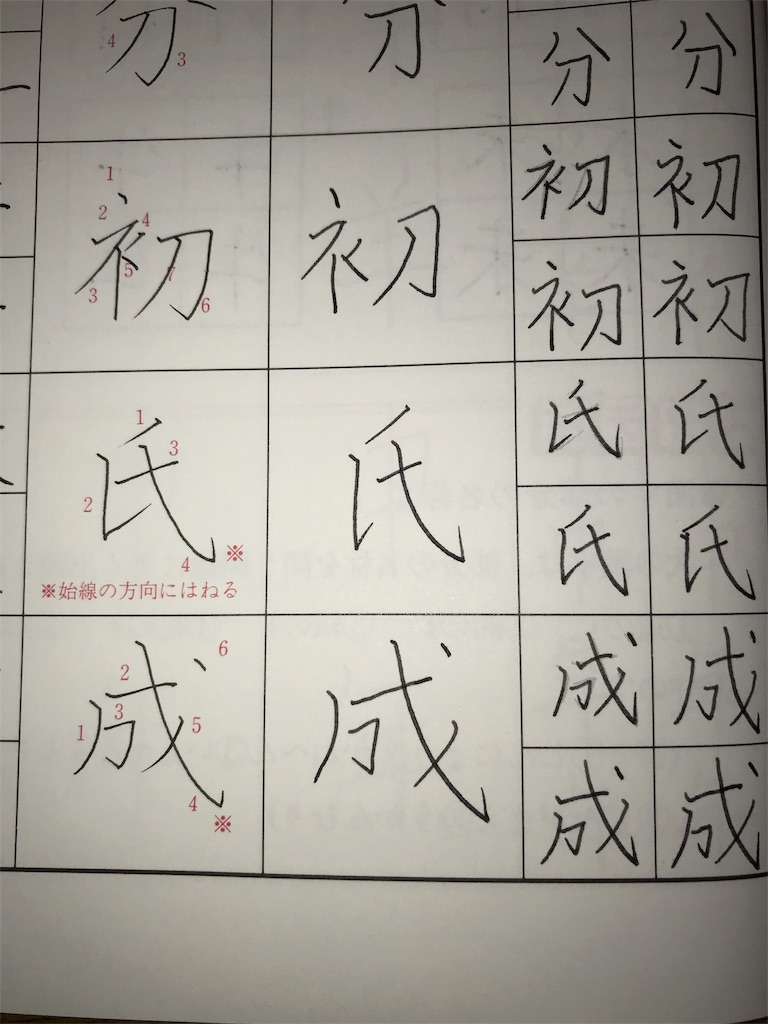 分 4 3 分 分 分
初 1 2 3 4 5 6 7 初 初 初
初 初
氏 1 2 3 4 ※ 氏 氏 氏
※始線の方向にはねる
氏 氏
成 1 2 3 4 5 6 ※ 成 成 成
成 成